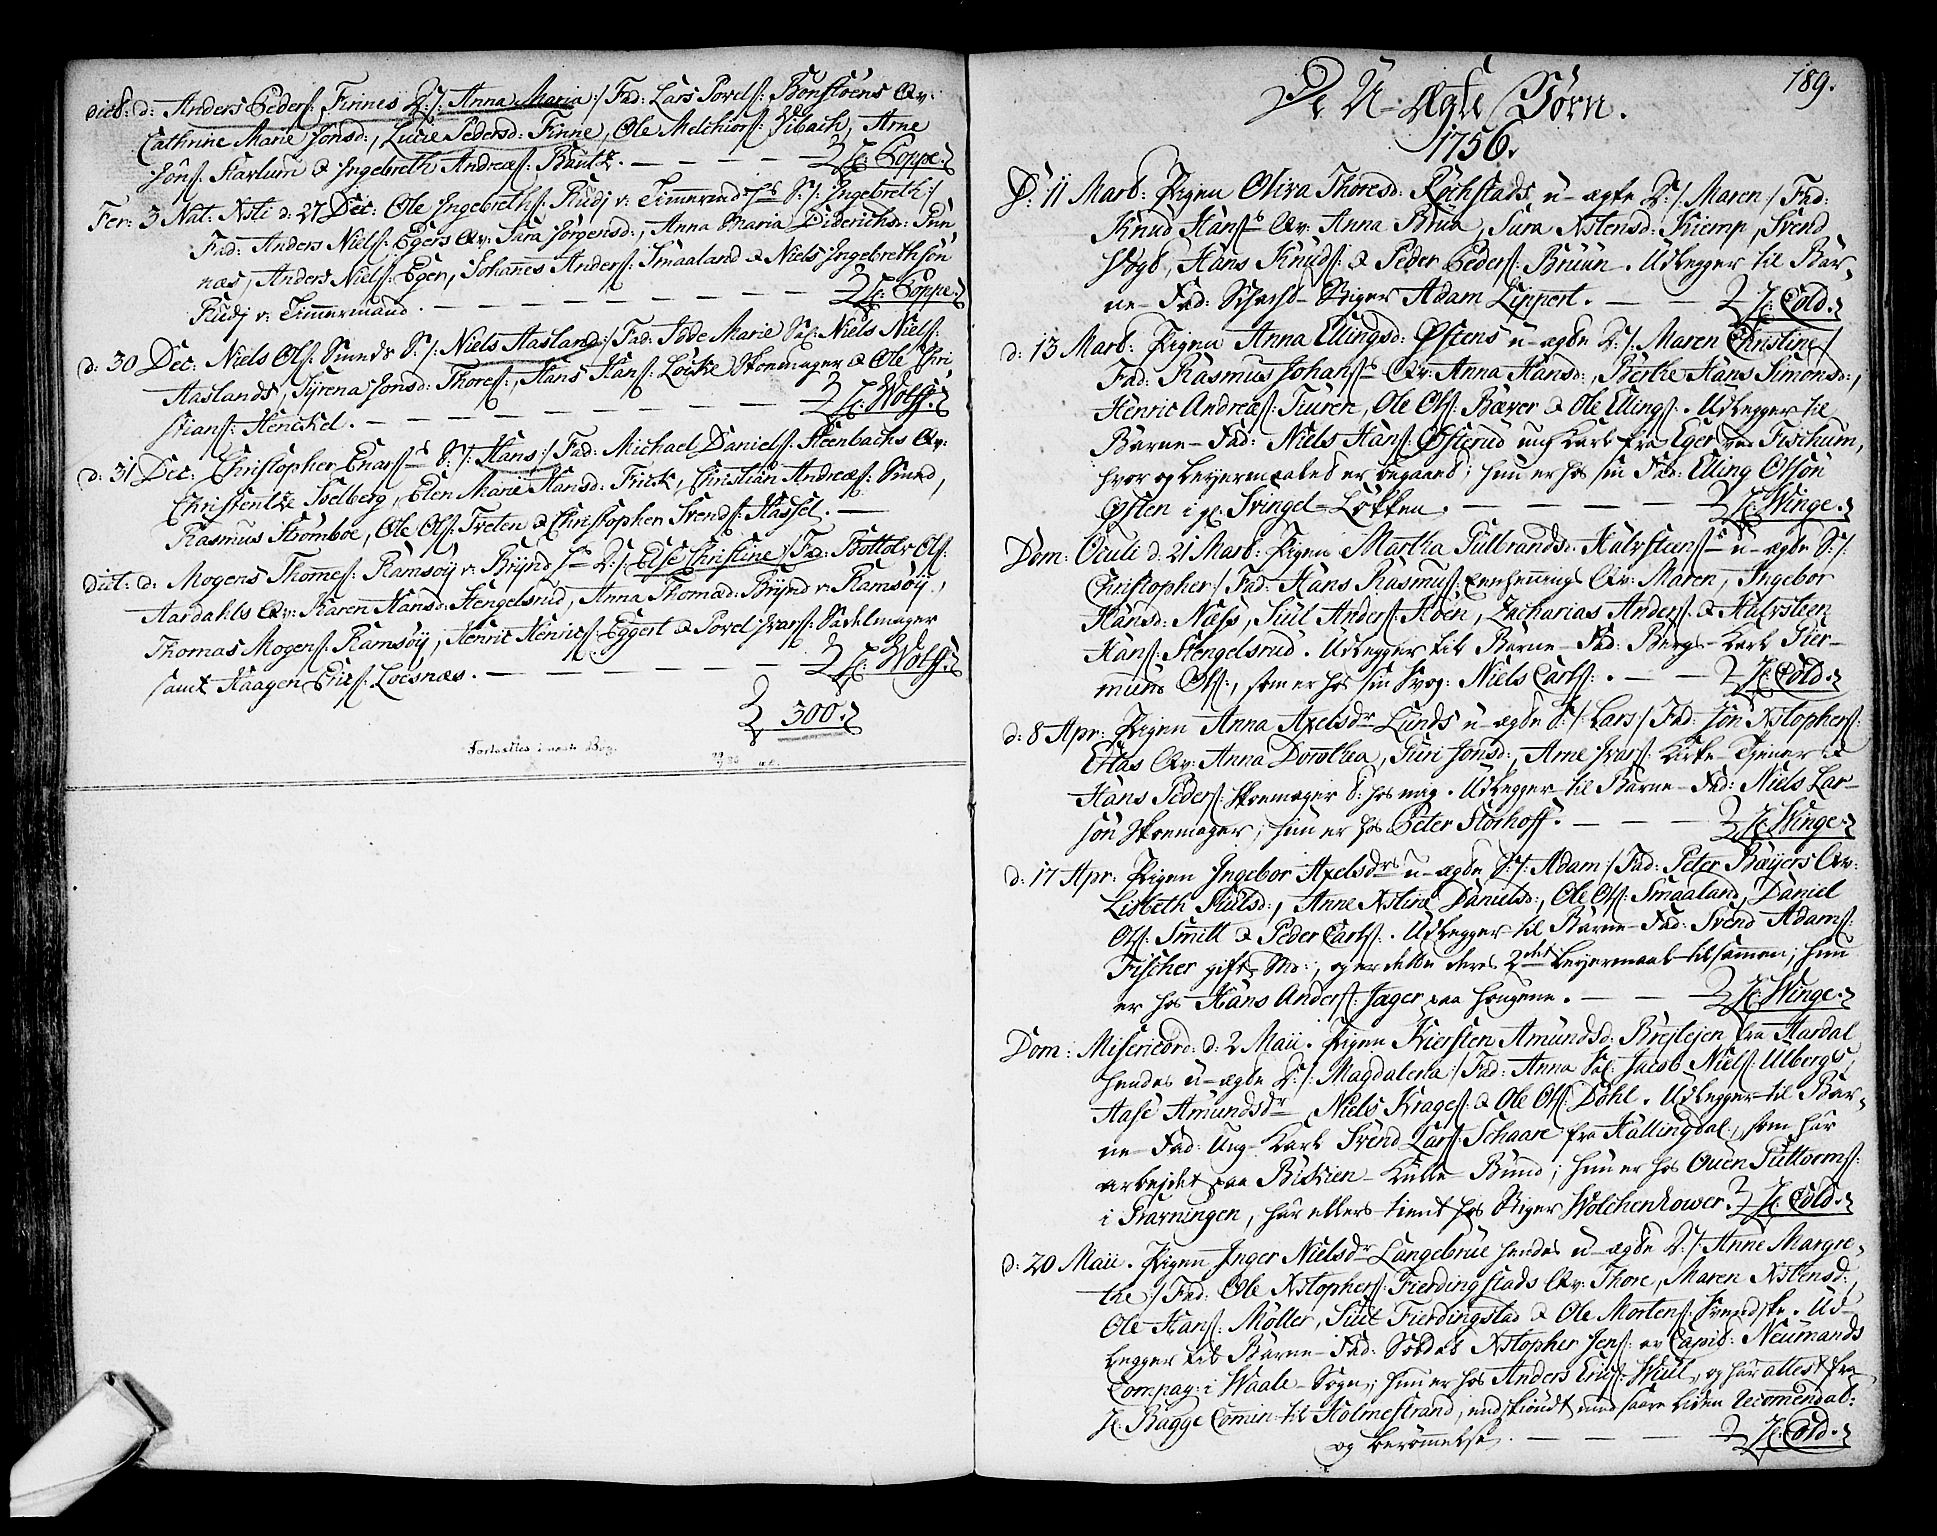 dict: d: Anders Peders: Finnes D:/: Anna Maria:/ Fad: Lars Povels: Bonstoens Qv:
Cathrine Marie Jonsd:, Lucie Pedersd: Finne, Ole Melchiors: Vibach, Arne
Jöns: Skarlum & Ingebreth Andreæs: Bautz. — — — — H: Coppe.
Fer: 3 Nat: Xsti d: 27 Dec: Ole Ingebreths: Rudj v: Timmermands S:/: Ingebreth:/
Fad: Anders Niels: Egers Qv: Sara Jörgensd:, Anna Maria Diderichsd:
næs, Anders Niels: Eger, Johannes Anders: Smaaland & Niels Ingebrethsön
Rudj v: Timmermand. — — — — — — — — H: Coppe.
d: 30 Dec: Niels Ols: Smeds S:/: Niels Aasland:/ Fad: Sal: Niels Niels:
Aaslands, Syrena Jonsd: Thores:, Hans Hans: Löcke Skomager & Ole Chri
stians: Henckel. — — — — — — — H: Wolff.
d: 31 Dec: Christopher Enars: S:/: Hans:/ Fad: Michael Daniels: Steenbachs Qv:
Christentze Selberg, Elen Marie Hansd: Frick, Christian Andreæs: Smed,
Rasmus Strömboe, Ole Ols: Tveten & Christopher Svends: Hassel. —
dict: d: Mogens Thomes: Ramsöy v: Brynd D:/: Else Christine:/ Fad: Bottolv Ols:
Aardahls Qv: Karen Hansd: Hengelsrud, Anna Thomæd: Brynd v: Ramsöy,
Thomas Mogens: Ramsöy, Henric Henrics: Eggert & Povel Ivars: Sadelmager
samt Haagen Erics: Løesnæs. — — — — — H: Wolff.
300.
Fortsættes i næste Bog.
189.
De U-Ægte Børn.
1756.
D: 11 Mart: Pigen Oliva Thoresd: Rochstads u-ægte D:/: Maren:/ Fad:
Knud Hans: Qv: Anna Brun, Sara Xstensd: Kiemp, Svend
Vogt, Hans Knuds: & Peder Peders: Bruun. Udlegger til Bar-
ne-Fad: Schacht-Stiger Adam Lippert. — — H: Cold.
d: 13 Mart: Pigen Anna Ellingsd: Østens u-ægte D:/: Maren Christine:/
Fad: Rasmus Johans: Qv: Anna Hansd:, Berthe Hans Simonsd:,
Henric Andreæs: Turen, Ole Ols: Bæver & Ole Ellings:. Udlegger til
Barne-Fad: Niels Hans: Østerud ung Karl fra Eger ved Fischum,
hvor og Leyermaalet er begaaed; hun er hos sin Fad: Elling Olssön
Østen i pl: Svingel-Løkken. — — — — H: Winge.
Dom: Oculi d: 21 Mart: Pigen Martha Gulbrandsd: Halvsteens: u-ægte S:/:
Christopher:/ Fad: Hans Rasmus: Qv: Maren, Ingebor
Hansd: Næss, Juul Anders: Hoen, Zacharias Anders: & Halvsteen
Hans: Hengelsrud. Udlegger til Barne-Fad: Berg-Karl Guer-
mund Ols:, som er hos sin Svog: Niels Carls:. — — H: Cold.
d: 8 Apr: Pigen Anna Axelsdr Lunds u-ægte S:/: Lars:/ Fad: Jon Xstophers:
Ertas Qv: Anna Dorothea, Guri Jonsd:, Arne Ivars: Kirke-Tiener &
Hans Peders: Skomager S: hos mag. Udlegger til Barne-Fad: Niels Lar-
sön Skomager; hun er hos Peter Storhoff. — — — H: Winge.
d: 17 Apr: Pigen Ingebor Axelsdrs u-ægte S:/: Adam:/ Fad: Peter Bæyers Qv:
Lisbeth Skulsd:, Anne Xstine Danielsd:, Ole Ols: Smaaland, Daniel
Ols: Smitt & Peder Carls:. Udlegger til Barne-Fad: Svend Adams:
Fischer gift Md:, og er dette deres 2det Leyermaal tilsammen; hun
er hos Hans Anders: Jæger paa Haugene. — — H: Winge.
Dom: Misericord: d: 2 Maii. Pigen Kiersten Amundsd: Brejlejen fra Aardal
hendes u-ægte D:/: Magdalena:/ Fad: Anna Sal: Jacob Niels: Ulbergs,
Aase Amundsdr, Niels Krages: & Ole Ols: Dohl. Udlegger til Bar-
ne-Fad: Ung-Karl Svend Lars: Schaare fra Hallingdal, som har
arbejdet paa Kulle-Bund; hun er hos Ouen Guttorms:
i Barningen, har ellers tient hos Stiger Wolchenhower. H: Cold.
d: 20 Maii. Pigen Inger Nielsdr Langebrue hendes u-ægte D:/: Anne Margre-
the:/ Fad: Ole Xstophers: Fierdingstads Qv: Thore, Maren Xstensd:,
Ole Hans: Møller, Juul Fierdingstad & Ole Mortens: Svendske. Ud-
legger til Barne-Fad: Soldat Xstopher Jens: av Capit: Neumands
Compag: i Waale-Sogn; hun er hos Anders Erics: Wiul, og har attest fra
H: Bagge Comin: til Holmestrand, endskiöndt med saare liden recommendat:
og berömmelse. — — — — — H: Cold.